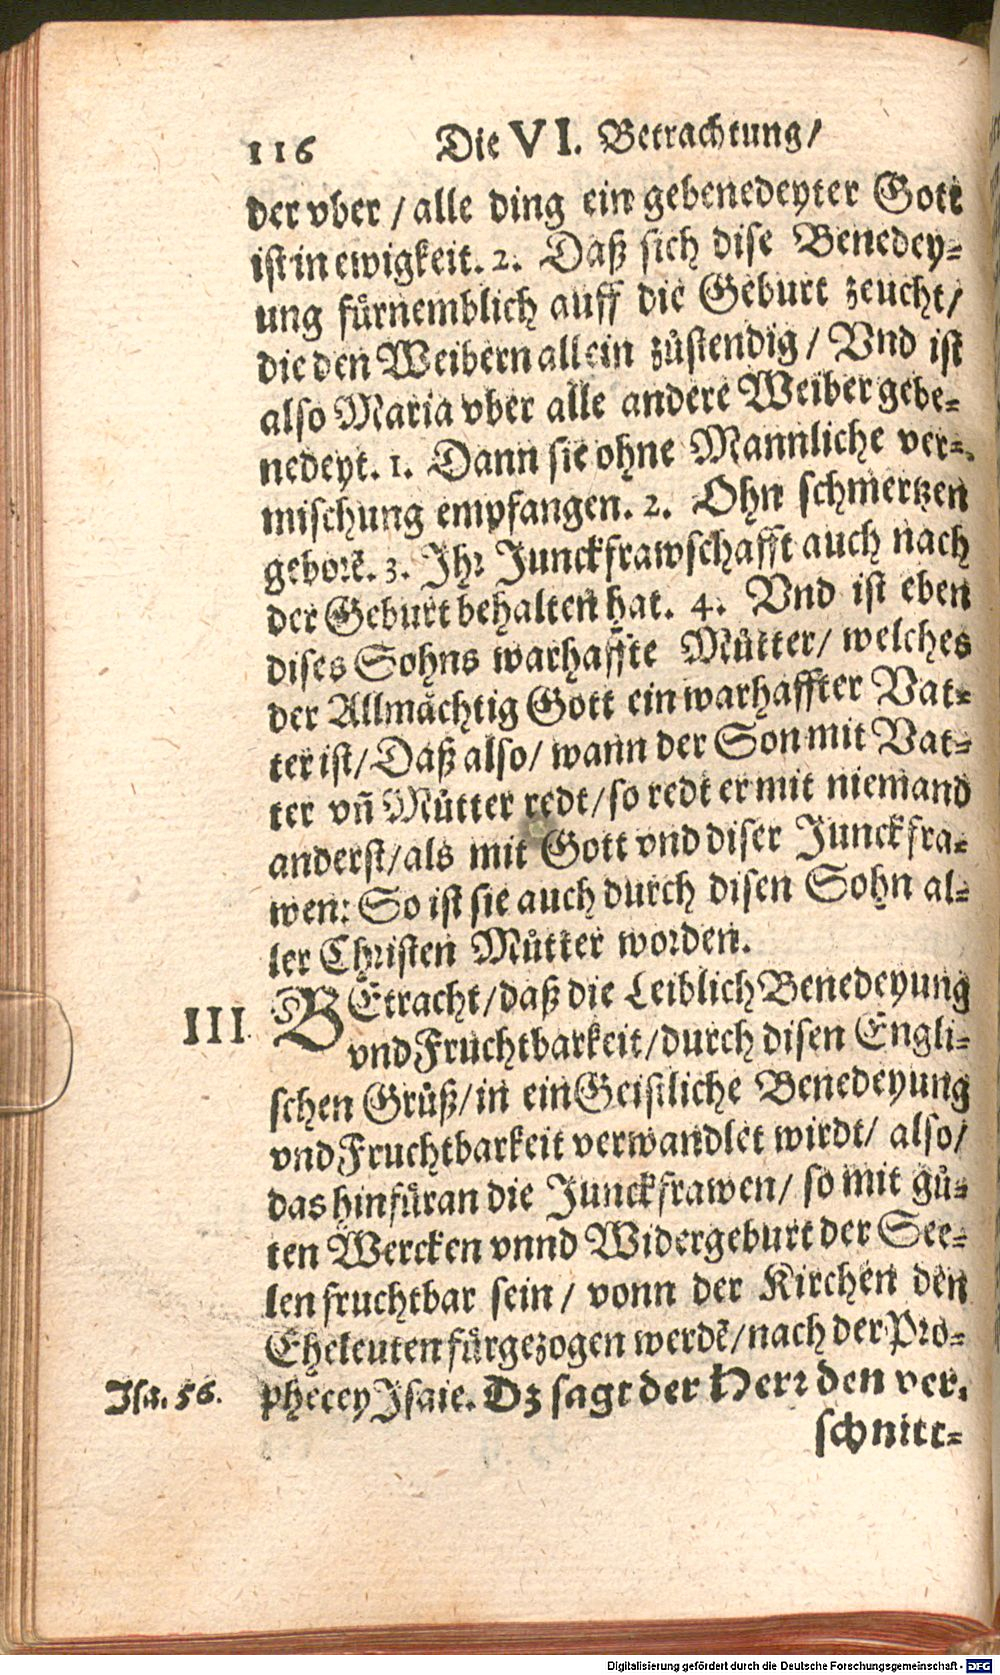 116 Die VI. Betrachtung/
der vber / alle ding ein gebenedeyter Gott
ist in ewigkeit. 2. Daß sich dise Benedey-
ung fürnemblich auff die Geburt zeucht/
die den Weibern allein zůstendig / Vnd ist
also Maria vber alle andere Weiber gebe-
nedeyt. 1. Dann sie ohne Mannliche ver-
mischung empfangen. 2. Ohn schmertzen
geborẽ. 3. Ihr Junckfrawschafft auch nach
der Geburt behalten hat. 4. Vnd ist eben
dises Sohns warhaffte Můtter/ welches
der Allmächtig Gott ein warhaffter Vat-
ter ist/ Daß also/ wann der Son mit Vat-
ter vñ Můtter redt/ so redt er mit niemand
anderst/ als mit Gott vnd diser Junckfra-
wen: So ist sie auch durch disen Sohn al-
ler Christen Můtter worden.
III. BEtracht/ daß die Leiblich Benedeyung
vnd Fruchtbarkeit/ durch disen Engli-
schen Grůß/ in ein Geistliche Benedeyung
vnd Fruchtbarkeit verwandlet wirdt/ also/
das hinfüran die Junckfrawen/ so mit gů-
ten Wercken vnnd Widergeburt der See-
len fruchtbar sein / vonn der Kirchen den
Eheleuten fürgezogen werdẽ/ nach der Pro-
Isa. 56. phecey Isaie. Dz sagt der Herr den ver-
schnitt-
Digitalisierung gefördert durch die Deutsche Forschungsgemeinschaft - DFG